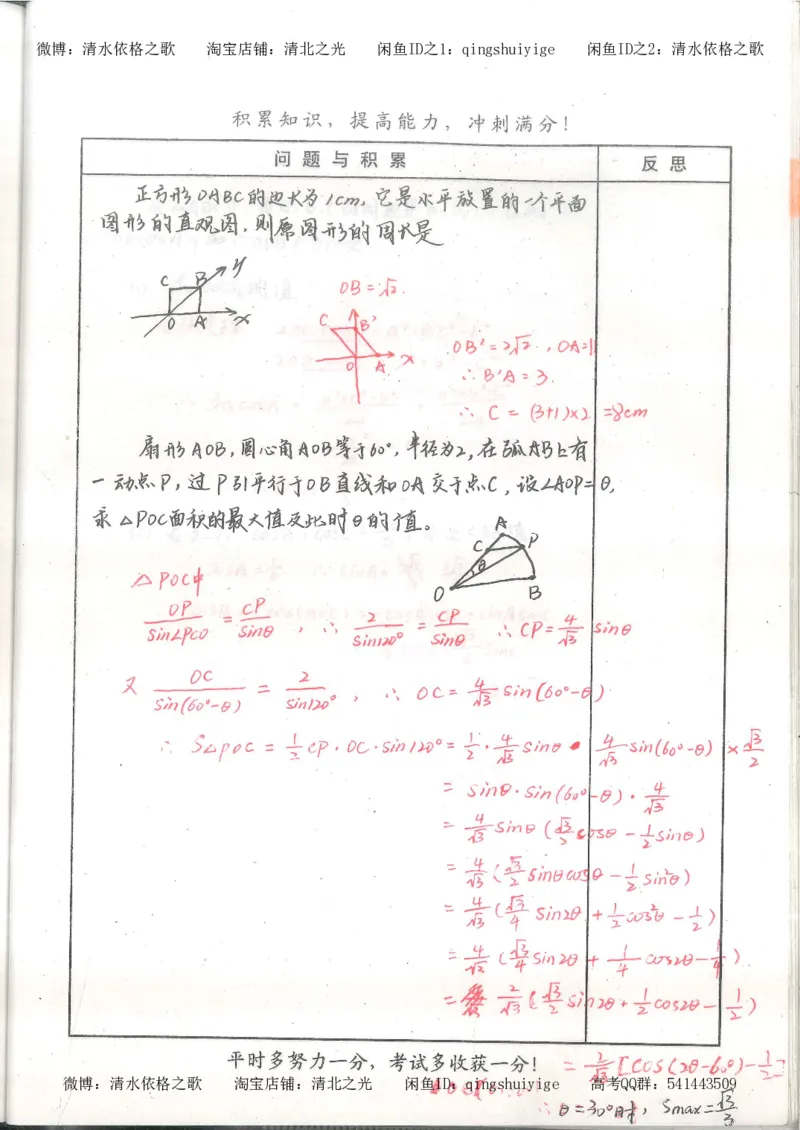 微博：清水依格之歌 淘宝店铺：清北之光 闲鱼ID之1：qingshuiyige 闲鱼ID之2：清水依格之歌
积累知识，提高能力，冲刺满分！
问题与积累 反思
正方形OABC的边长为1cm，它是水平放置的一个平面
图形的直观图，则原图形的周长是
C B y
O A x
OB=√2.
C B'
O A x
OB'=2√2，OA=1
∴B'A=3.
∴C=(3+1)×2=8cm
扇形AOB，圆心角AOB等于60°，半径为2，在弧AB上有
一动点P，过P引平行于OB直线和OA交于点C，设∠AOP=θ，
求△POC面积的最大值及此时θ的值。
A
C P
θ
O B
△POC中
OP/sin∠PCO = CP/sinθ，∴ 2/sin120° = CP/sinθ ∴CP=4/√3 sinθ
又 OC/sin(60°-θ) = 2/sin120°，∴OC=4/√3 sin(60°-θ)
∴S△POC=1/2 CP·OC·sin120°=1/2·4/√3 sinθ·4/√3 sin(60°-θ)×√3/2
=sinθ·sin(60°-θ)·4/√3
=4/√3 sinθ(√3/2 cosθ-1/2 sinθ)
=4/√3(√3/2 sinθcosθ-1/2 sin²θ)
=4/√3(√3/4 sin2θ+1/2 cos²θ-1/2)
=4/√3(√3/4 sin2θ+1/4 cos2θ-1/4)
=2/√3(√3/2 sin2θ+1/2 cos2θ-1/2)
平时多努力一分，考试多收获一分！
=2/√3[cos(2θ-60°)-1/2]
微博：清水依格之歌 淘宝店铺：清北之光 闲鱼ID：qingshuiyige 高考QQ群：541443509
∴θ=30°时，Smax=√3/3